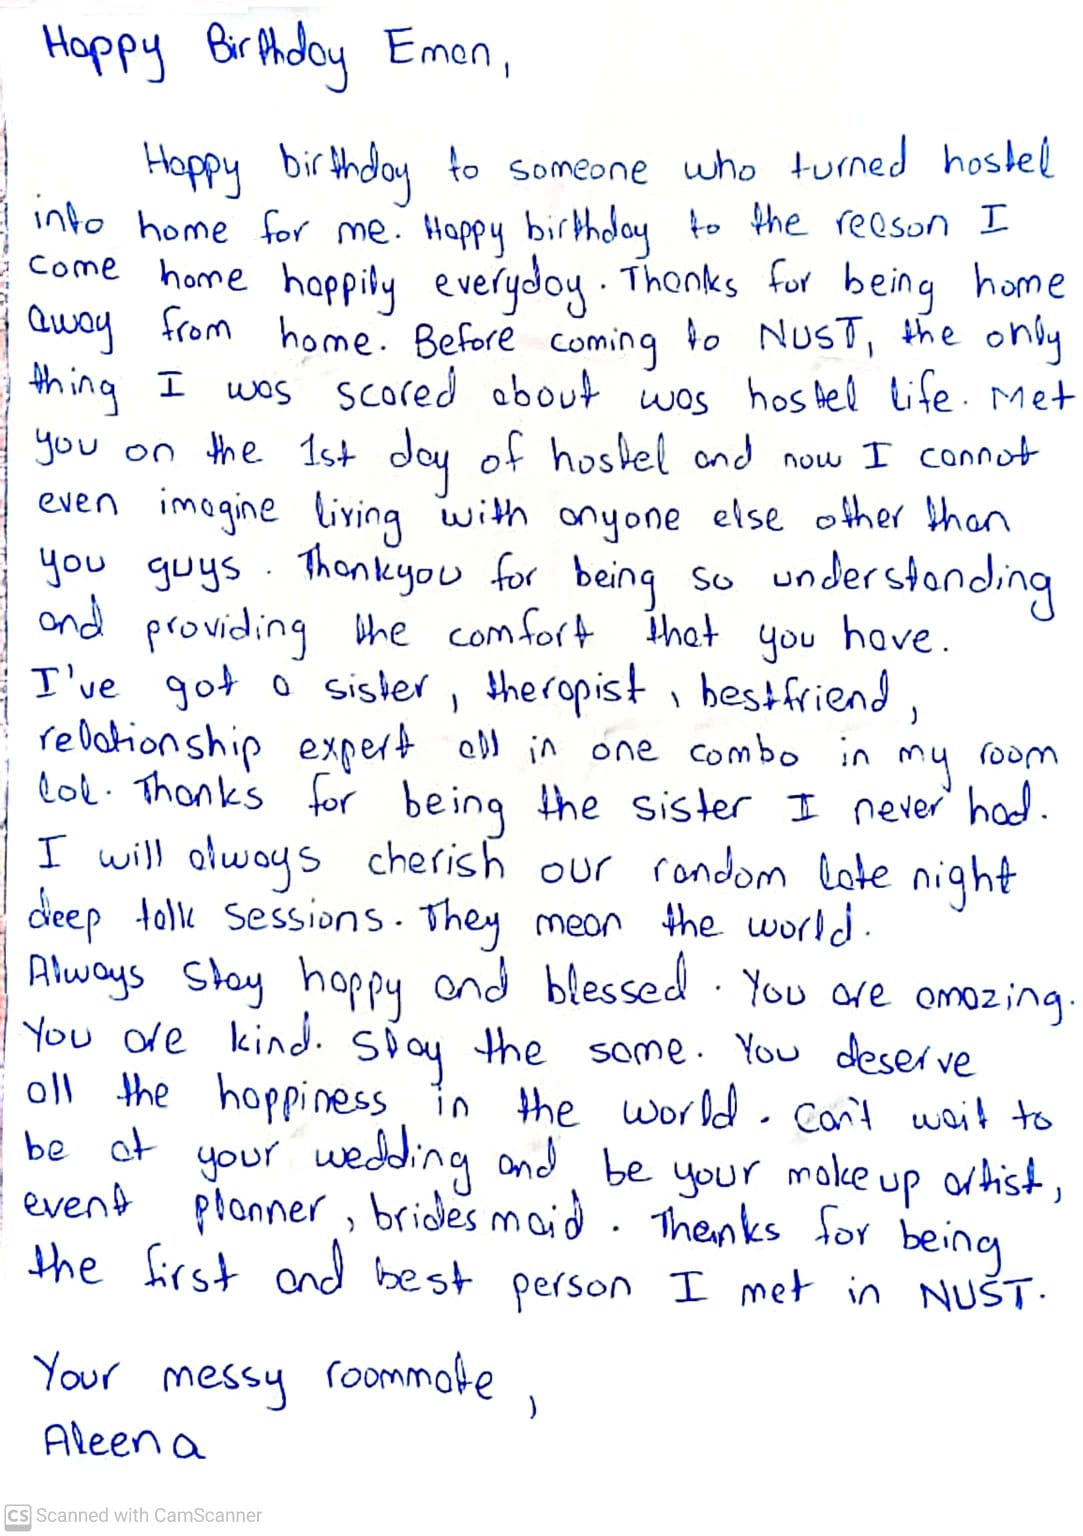 Happy Birthday Eman,
Happy birthday to someone who turned hostel
into home for me. Happy birthday to the reason I
come home happily everyday. Thanks for being home
away from home. Before coming to NUST, the only
thing I was scared about was hostel life. Met
you on the 1st day of hostel and now I cannot
even imagine living with anyone else other than
you guys. Thankyou for being so understanding
and providing the comfort that you have.
I've got a sister, therapist, bestfriend,
relationship expert all in one combo in my room
lol. Thanks for being the sister I never had.
I will always cherish our random late night
deep talk sessions. They mean the world.
Always stay happy and blessed. You are amazing.
You are kind. Stay the same. You deserve
all the happiness in the world. Can't wait to
be at your wedding and be your makeup artist,
event planner, bridesmaid. Thanks for being
the first and best person I met in NUST.
Your messy roommate,
Aleena
CS Scanned with CamScanner